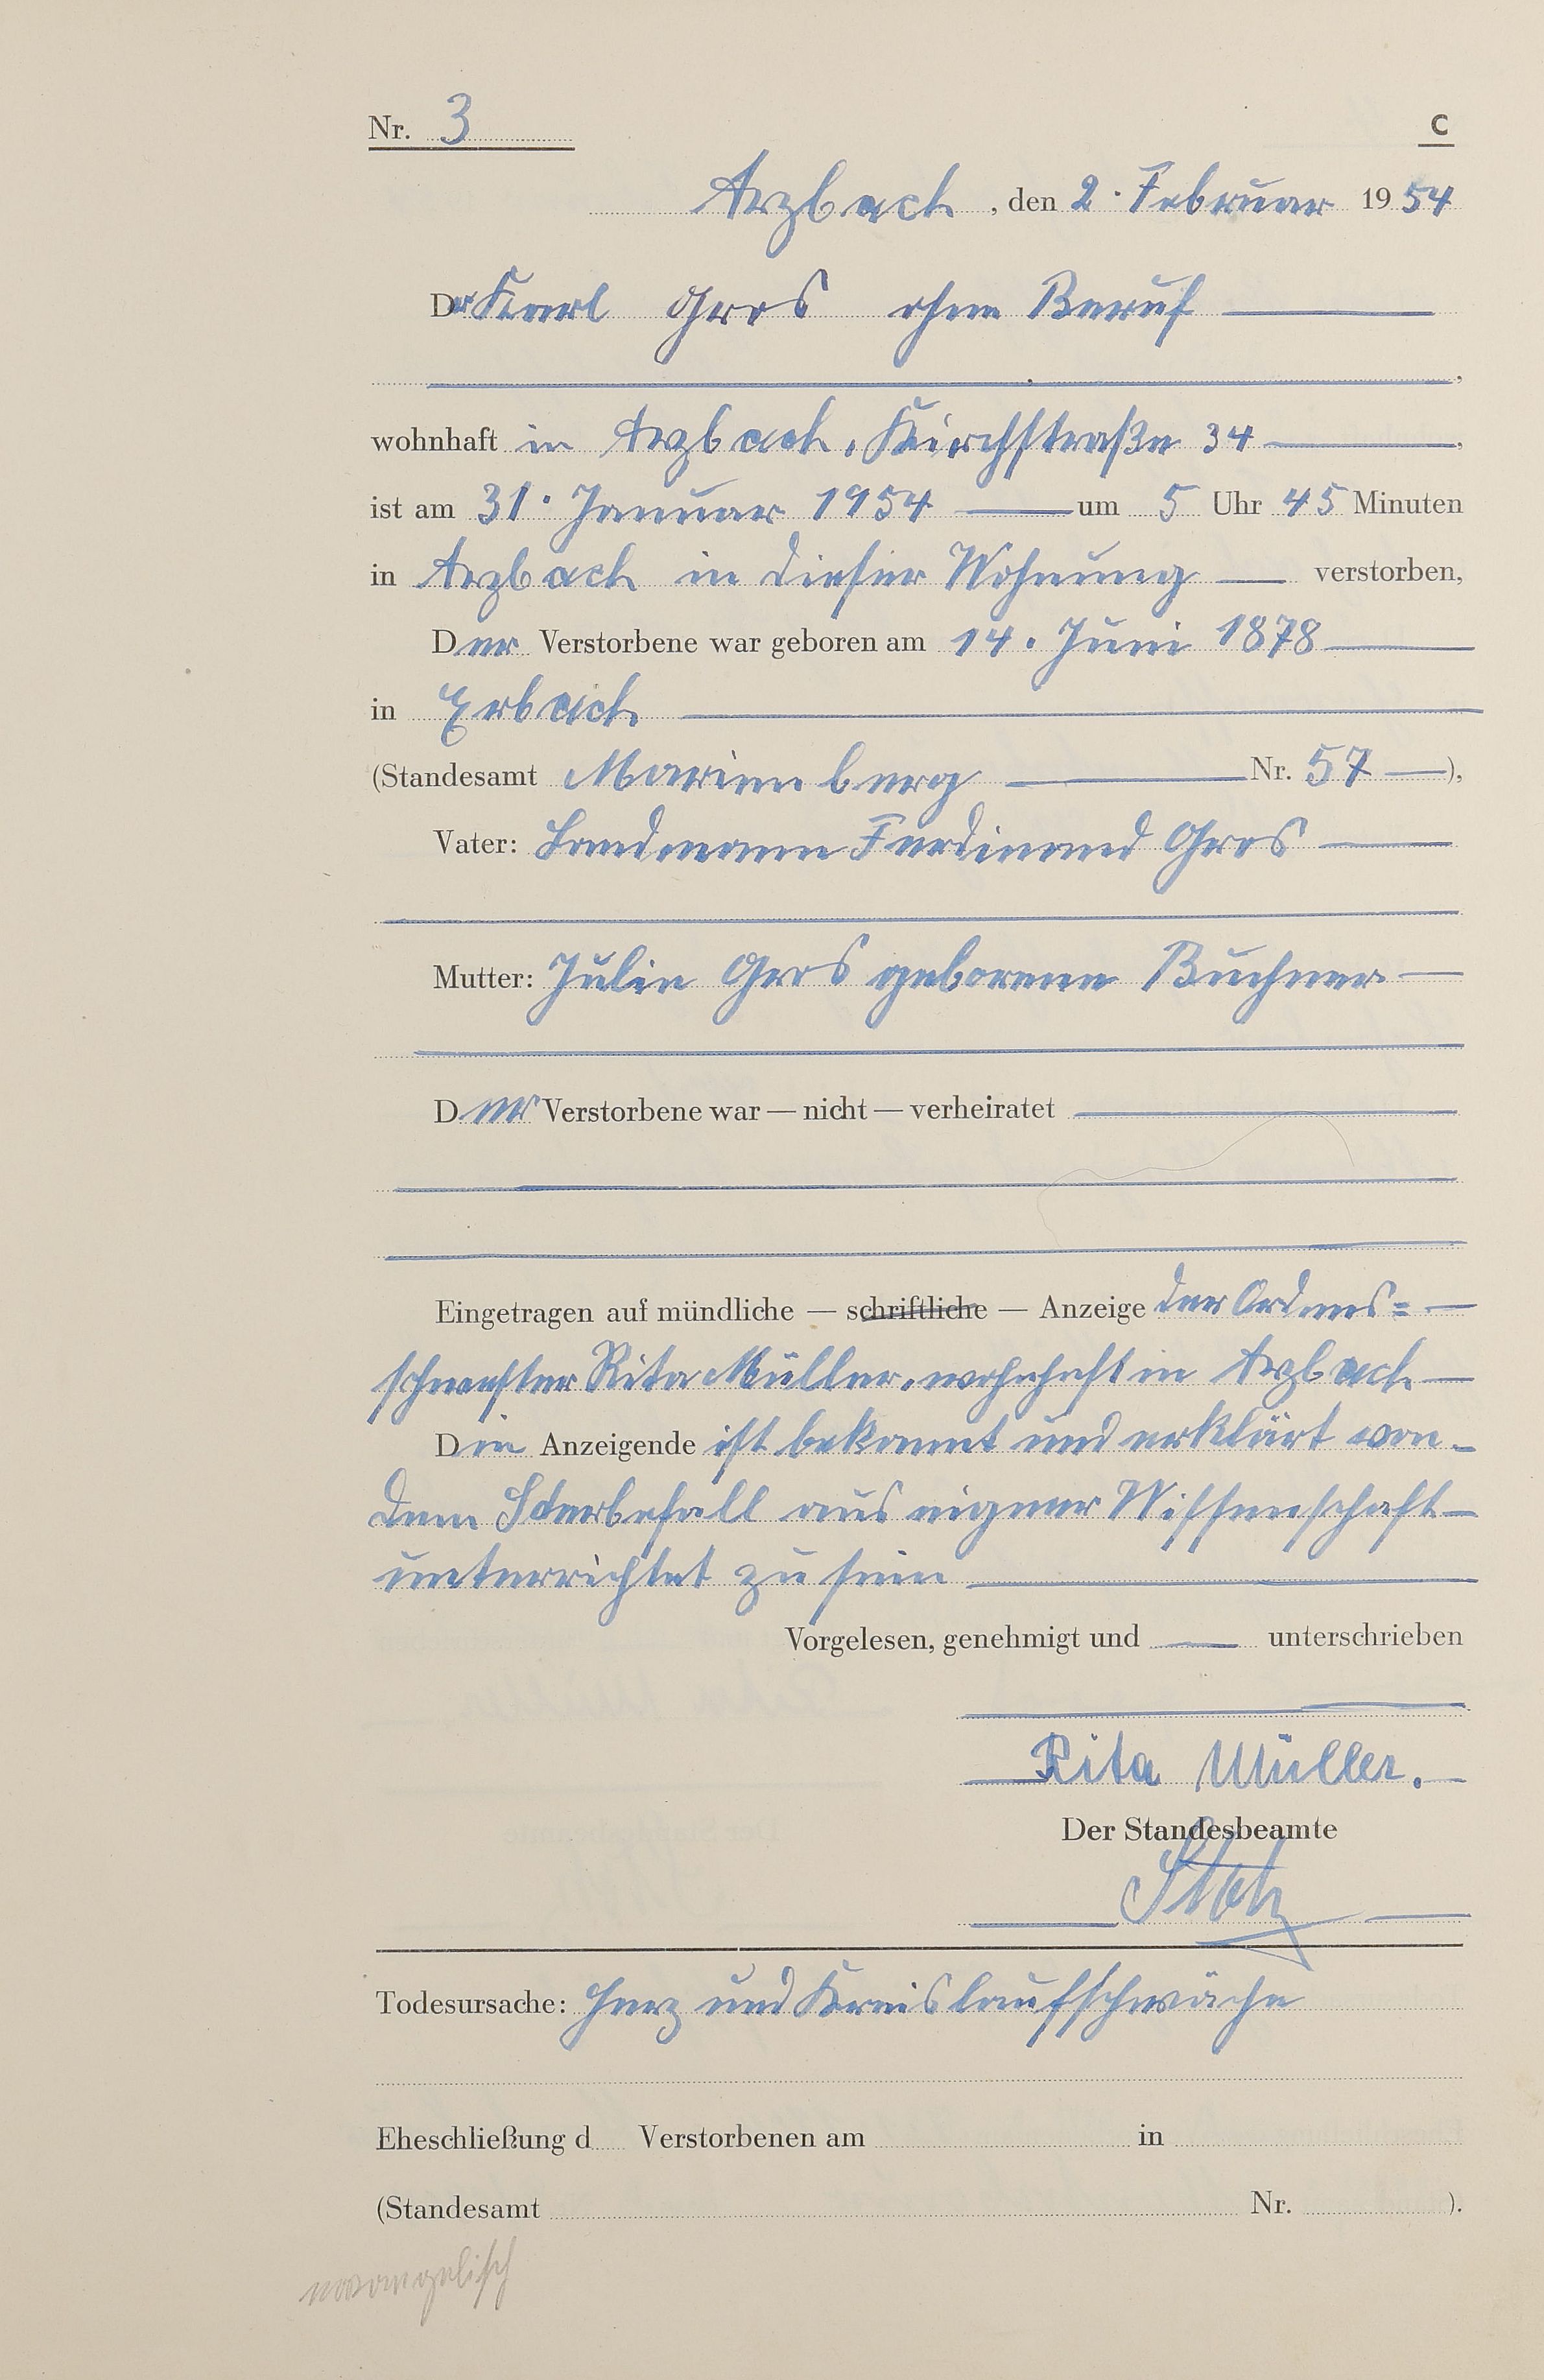 Nr. 3 C
Arzbach, den 2. Februar 1954
Der Karl Gros ohne Beruf
,
wohnhaft in Arzbach, Kirchstraße 34,
ist am 31. Januar 1954 um 5 Uhr 45 Minuten
in Arzbach in dieser Wohnung verstorben,
Der Verstorbene war geboren am 14. Juni 1878
in Erbach
(Standesamt Marienberg Nr. 57),
Vater: Landmann Ferdinand Gros
Mutter: Julie Gros geborene Buchner
Der Verstorbene war — nicht — verheiratet
Eingetragen auf mündliche — schriftliche — Anzeige der Ordens=
schwester Rita Müller, wohnhaft in Arzbach
Die Anzeigende ist bekannt und erklärt von
dem Sterbefall aus eigner Wissenschaft
unterrichtet zu sein
Vorgelesen, genehmigt und unterschrieben
Rita Müller.
Der Standesbeamte
Stotz
Todesursache: Herz und Kreislaufschwäche
Eheschließung d Verstorbenen am in
(Standesamt Nr. ).
evangelisch